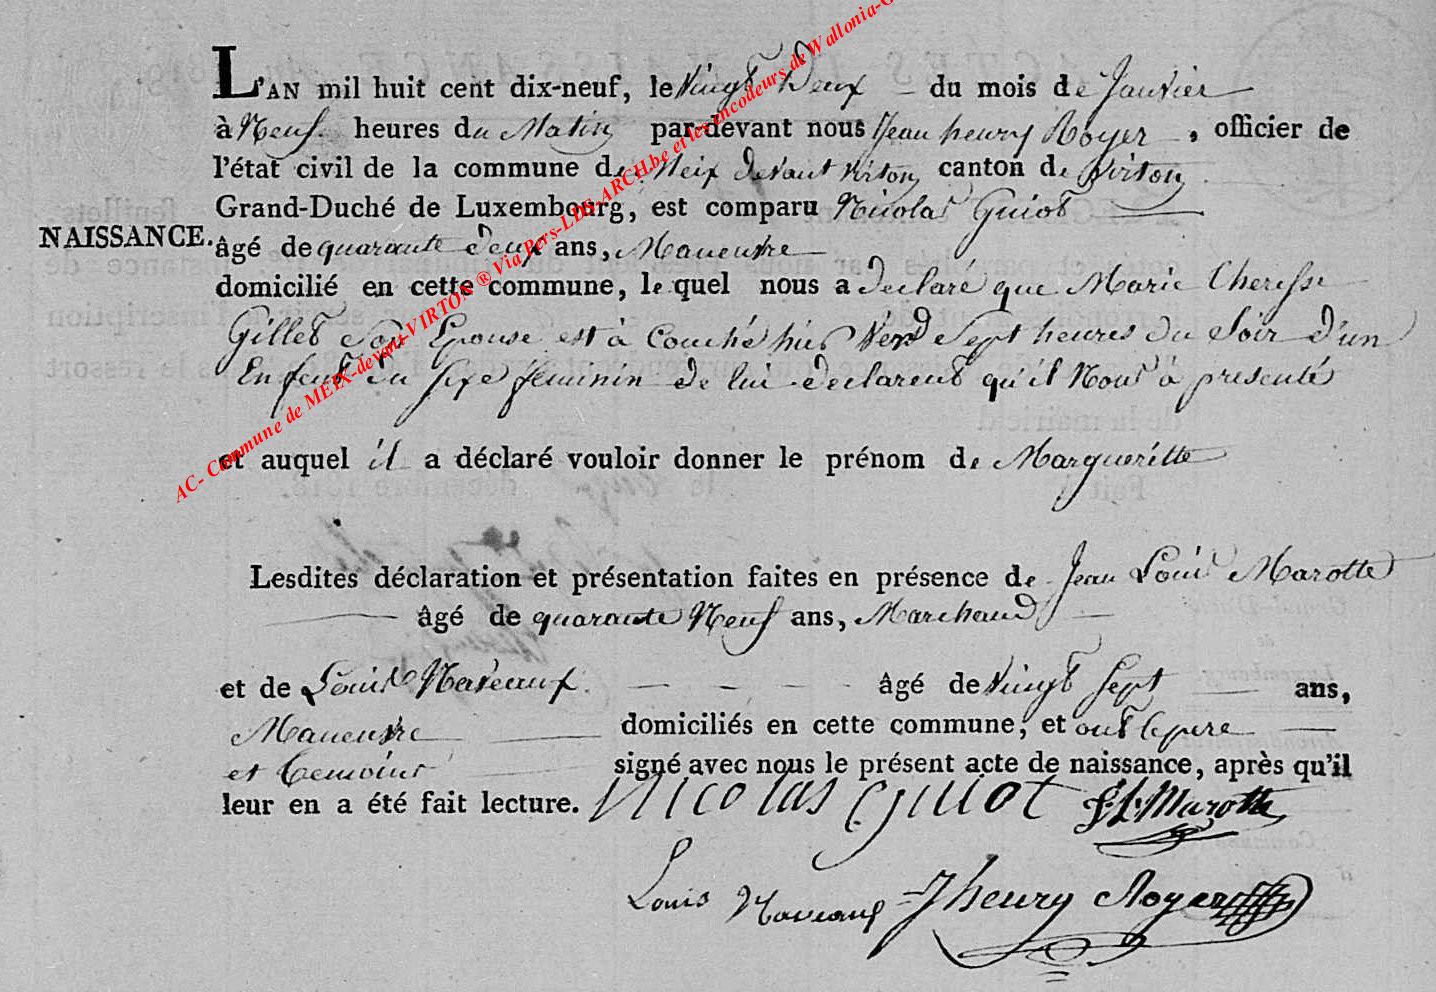 L'AN mil huit cent dix-neuf, le Vingt Deux du mois de Janvier
à Neuf heures du Matin par-devant nous Jean henry Royer, officier de
l'état civil de la commune de Meix devant virton canton de virton
Grand-Duché de Luxembourg, est comparu Nicolas Guiot
NAISSANCE.
âgé de quarante deux ans, Maneuvre
domicilié en cette commune, lequel nous a declaré que Marie Theresse
Gillet Son Epouse est à Couché hier Vers Sept heures du Soir d'un
Enfent du Sexe feminin de lui declarent qu'il Nous à presenté
et auquel il a déclaré vouloir donner le prénom de Margueritte
Lesdites déclaration et présentation faites en présence de Jean Louis Marotte
âgé de quarante Neuf ans, Marchand
et de Louis Naveaux âgé de Vingt Sept ans,
Maneuvre domiciliés en cette commune, et ont le pere
et temoins signé avec nous le présent acte de naissance, après qu'il
leur en a été fait lecture. Nicolas Guiot J L Marotte
Louis Naveaux J henry Royer
AC- Commune de MEIX-devant-VIRTON ® Via Pers-LDS-ARCH.be et les encodeurs de Wallonia-G